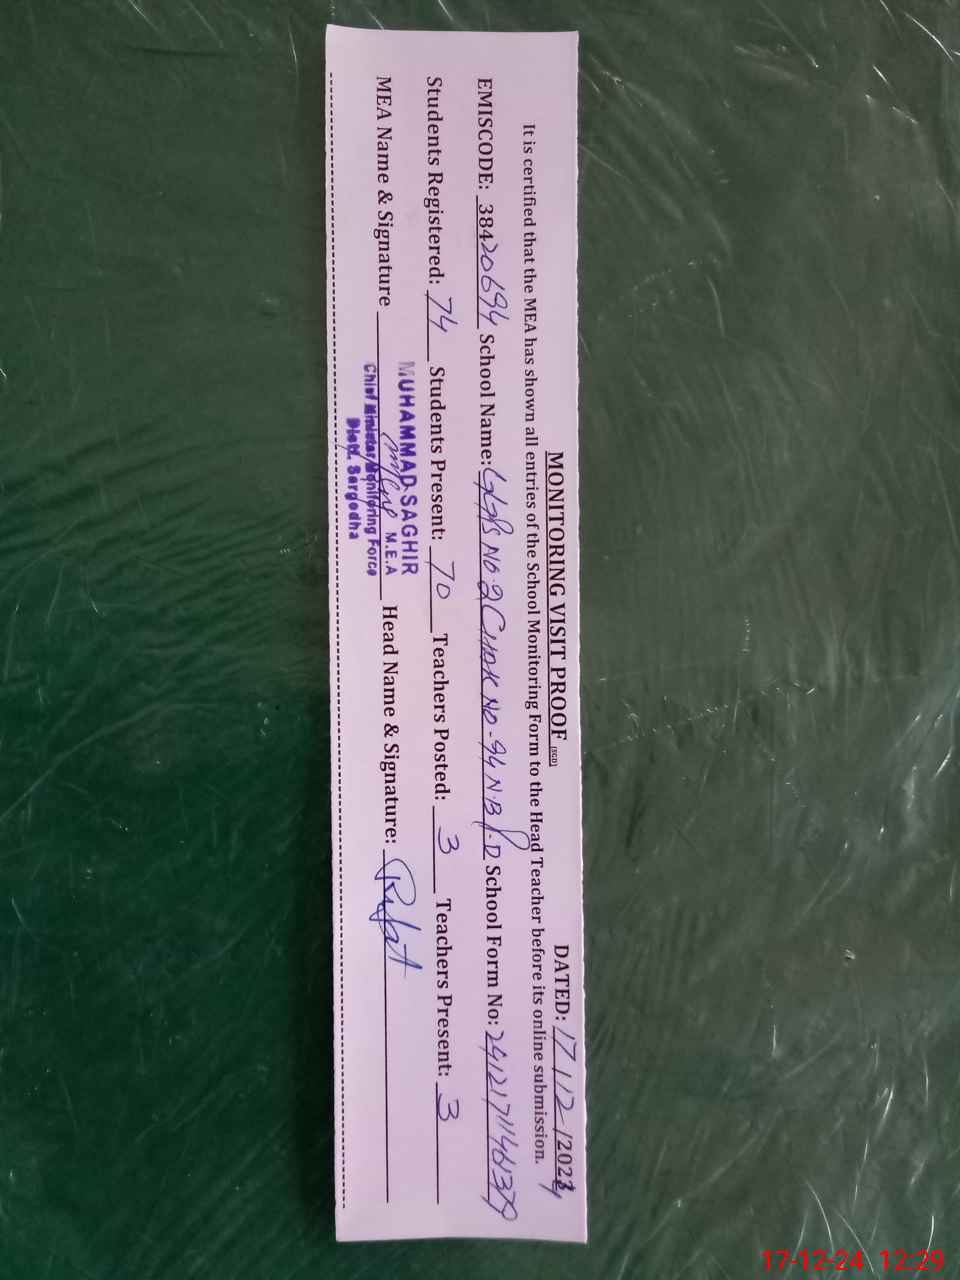 MONITORING VISIT PROOF (SGD) DATED: 17/12/2024
It is certified that the MEA has shown all entries of the School Monitoring Form to the Head Teacher before its online submission.
EMISCODE: 38420694 School Name: GGPS NO.2 CHAK NO-94 N.B P-D School Form No: 24121711461379
Students Registered: 74 Students Present: 70 Teachers Posted: 3 Teachers Present: 3
MEA Name & Signature Head Name & Signature: Rifat
MUHAMMAD SAGHIR
M.E.A
Chief Minister Monitoring Force
Distt. Sargodha
17-12-24 12:29